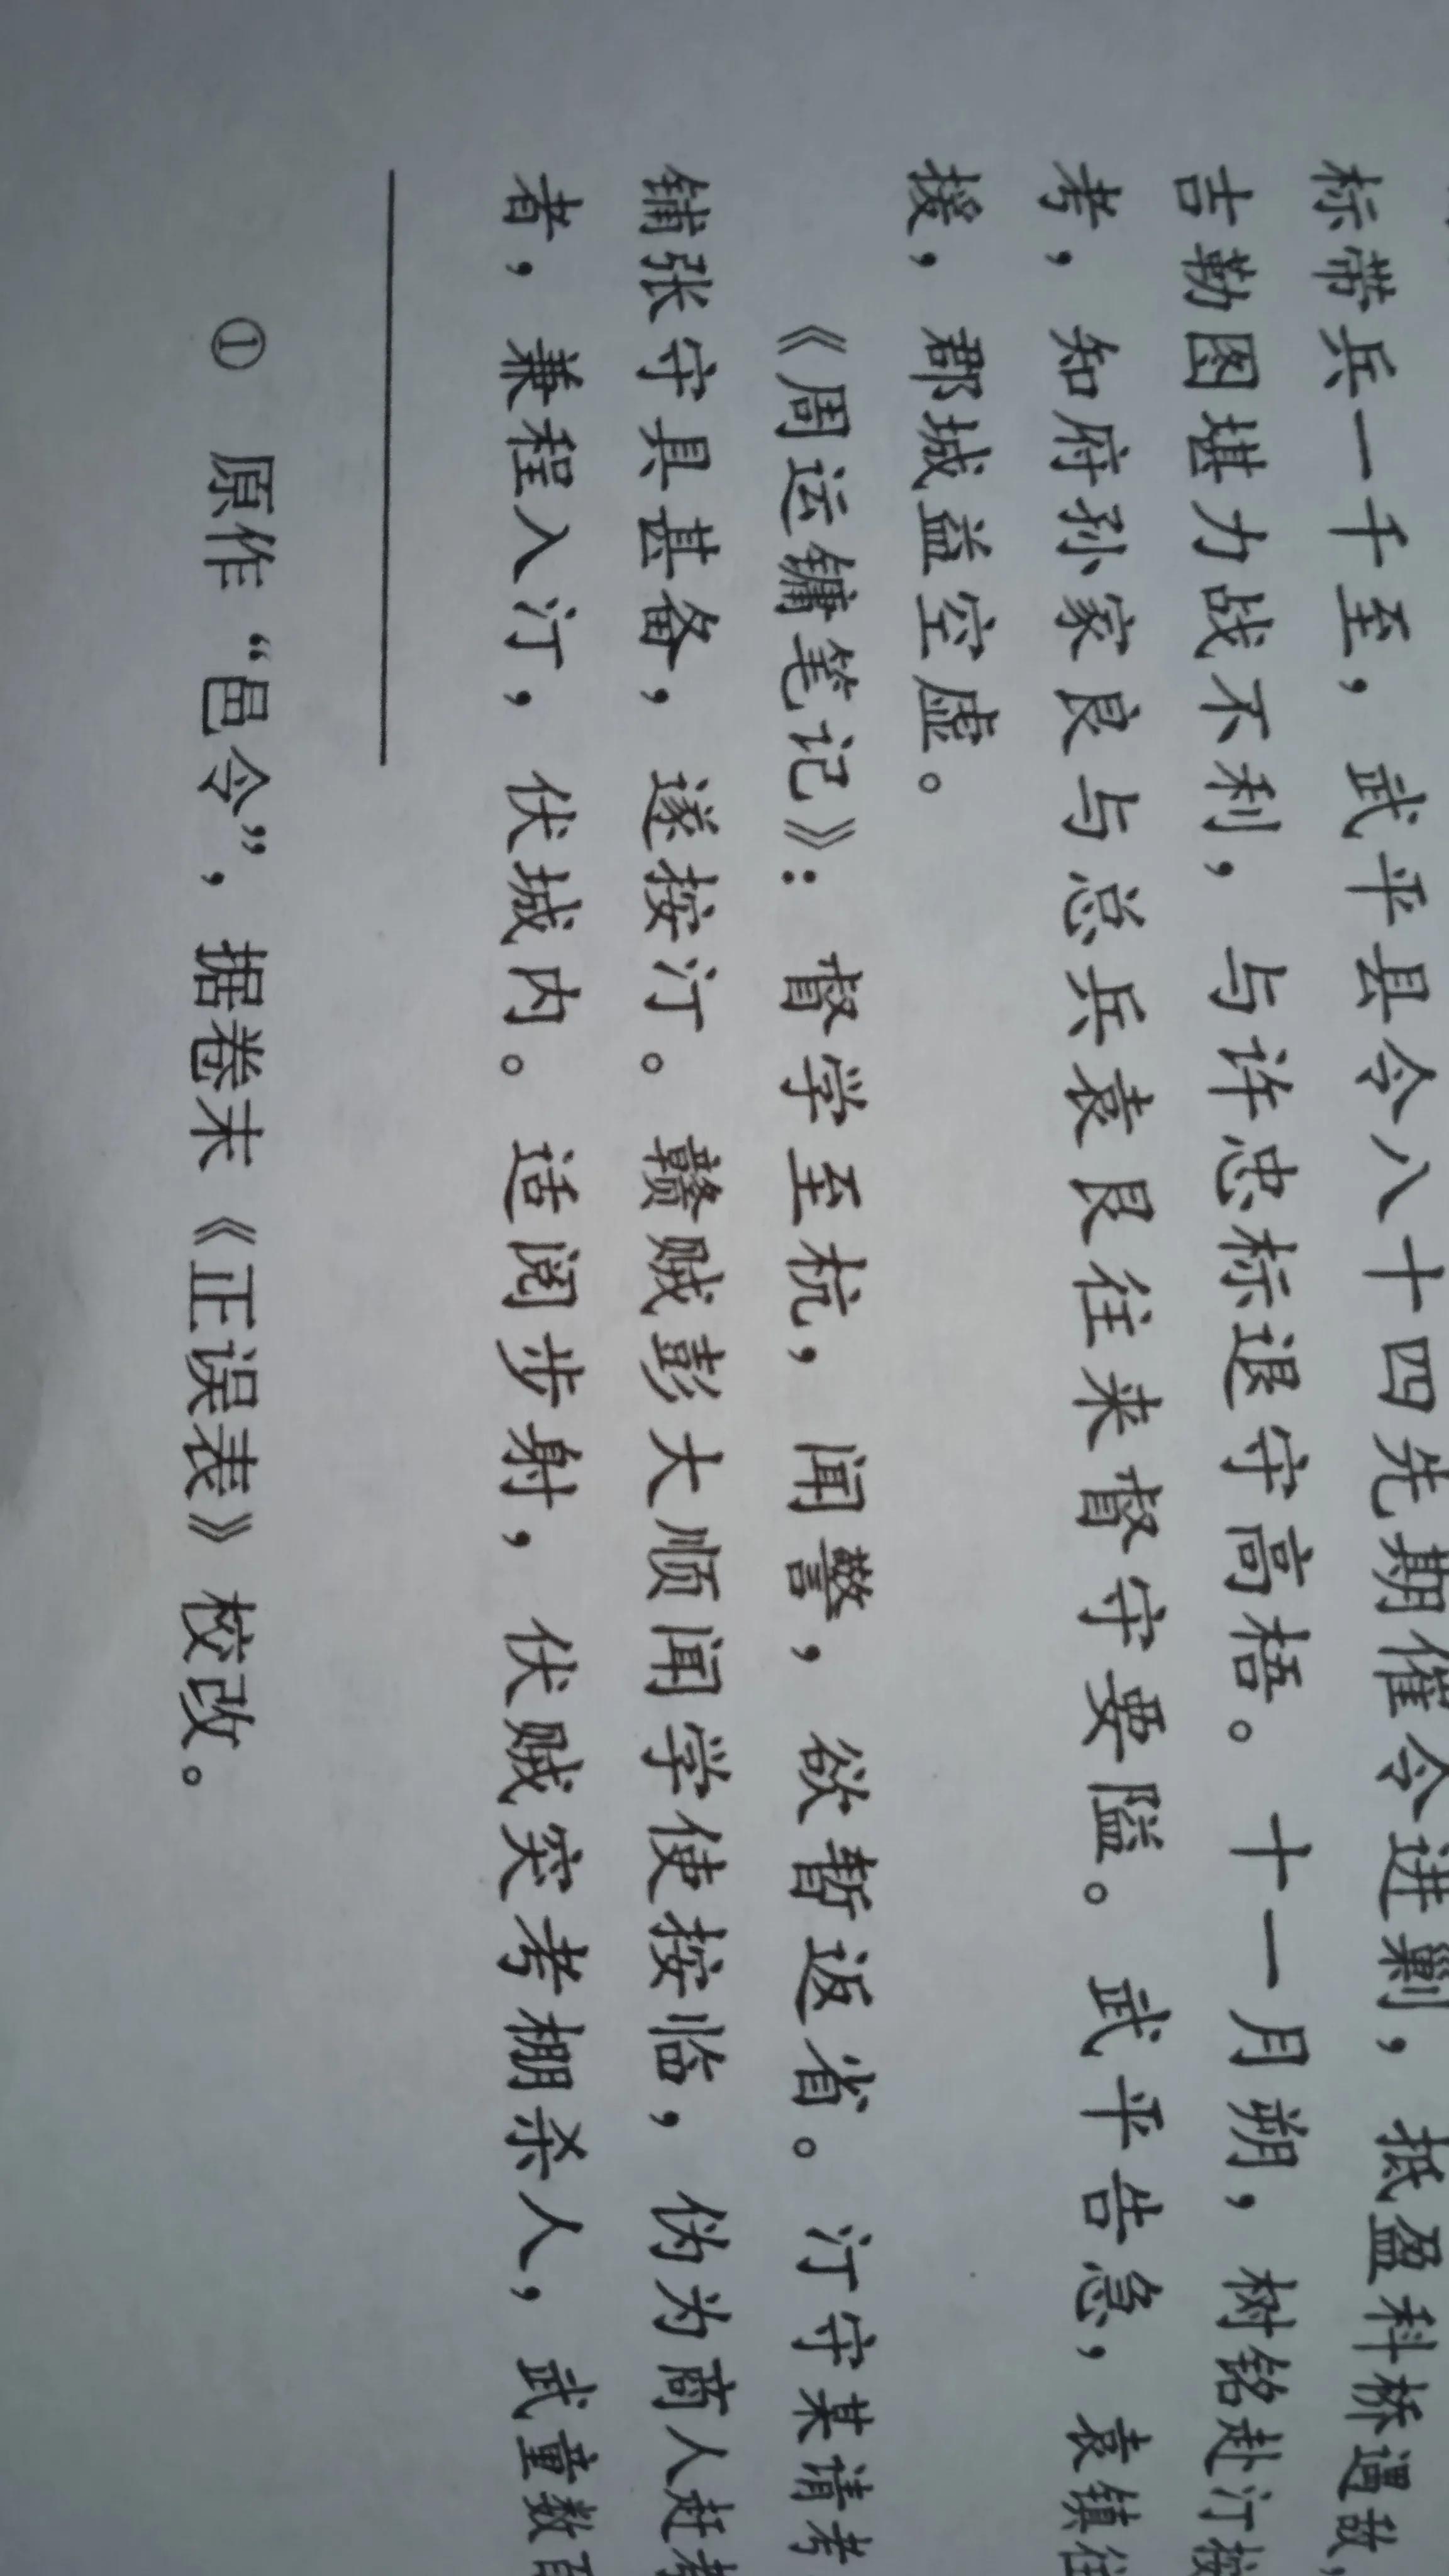 标带兵一千至，武平县令八十四先期催令进剿，抵盈科桥遇敌，
吉勒图堪力战不利，与许忠标退守高梧。十一月朔，树铭赴汀按
考，知府孙家良与总兵袁艮往来督守要隘。武平告急，袁镇往
援，郡城益空虚。
《周运镛笔记》：督学至杭，闻警，欲暂返省。汀守某请考，
铺张守具甚备，遂按汀。赣贼彭大顺闻学使按临，伪为商人赶考
者，兼程入汀，伏城内。适阅步射，伏贼突考棚杀人，武童数百
① 原作“邑令”，据卷末《正误表》校改。